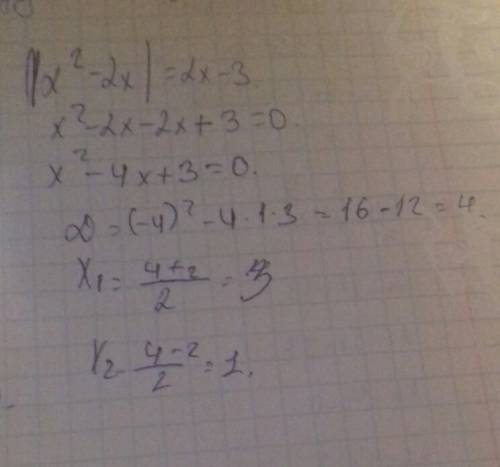 |x² - 2x| = 2x - 3.
x² - 2x - 2x + 3 = 0.
x² - 4x + 3 = 0.
D = (-4)² - 4 · 1 · 3 = 16 - 12 = 4.
x₁ = (4+2)/2 = 3
x₂ = (4-2)/2 = 1.